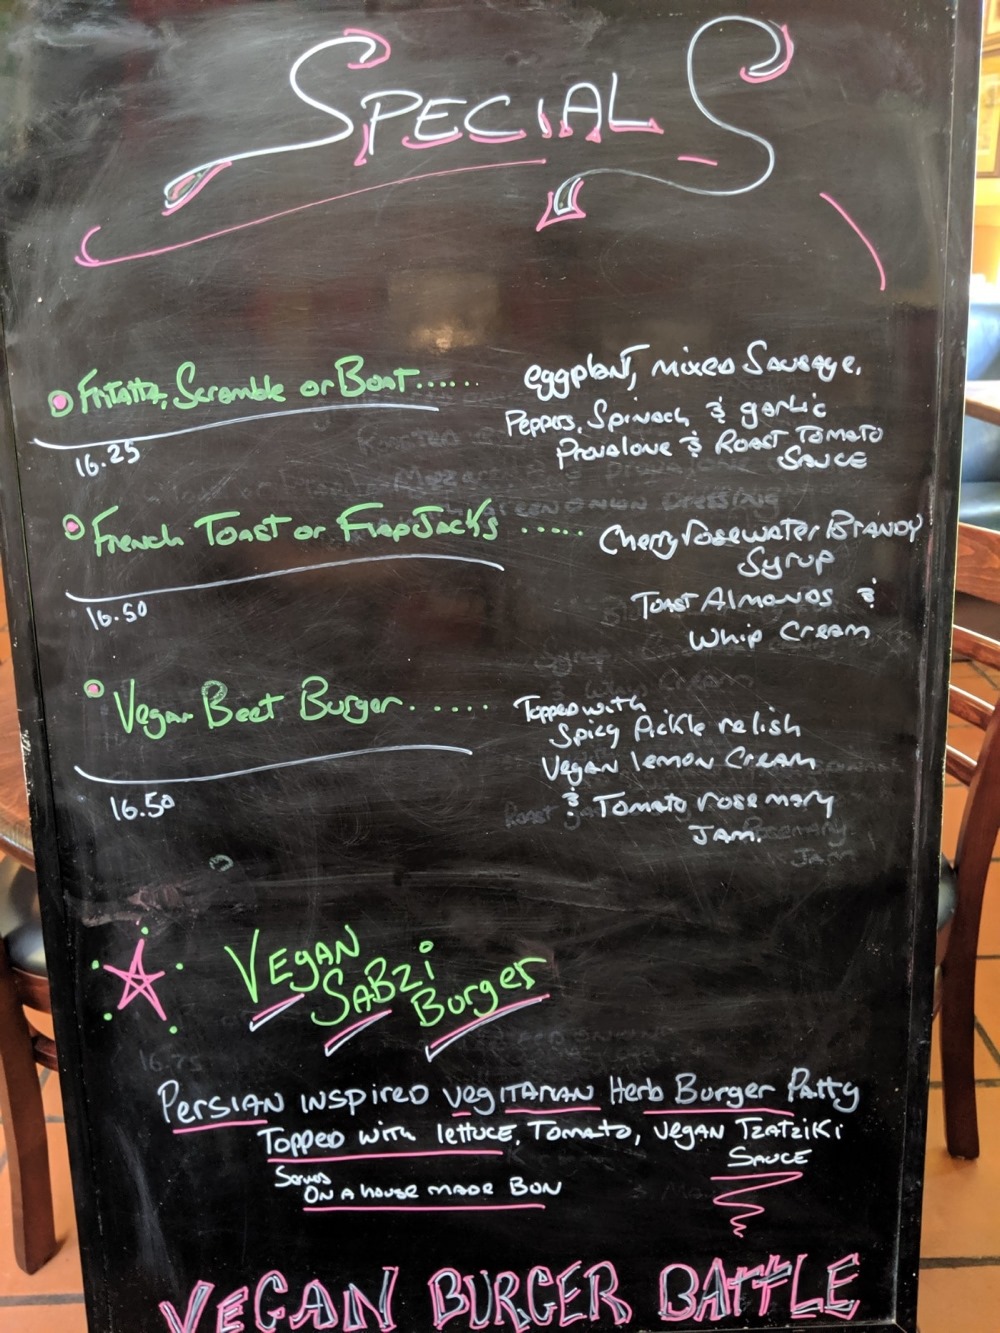 SPECIALS
Fritatta, Scramble or Boat......
eggplant, mixed Sausage,
Peppers, Spinach & garlic
Provalone & Roast Tomato
Sauce
16.25
French Toast or FlapJacks .....
Cherry rosewater Brandy
Syrup
Toast Almonds &
Whip Cream
16.50
Vegan Beet Burger......
Topped with
Spicy Pickle relish
Vegan lemon Cream
& Tomato rosemary
Jam.
16.50
Vegan
Sabzi
Burger
Persian inspired vegitarian Herb Burger Patty
Topped with lettuce, Tomato, vegan Tzatziki
Sauce
On a house made Bun
VEGAN BURGER BATTLE